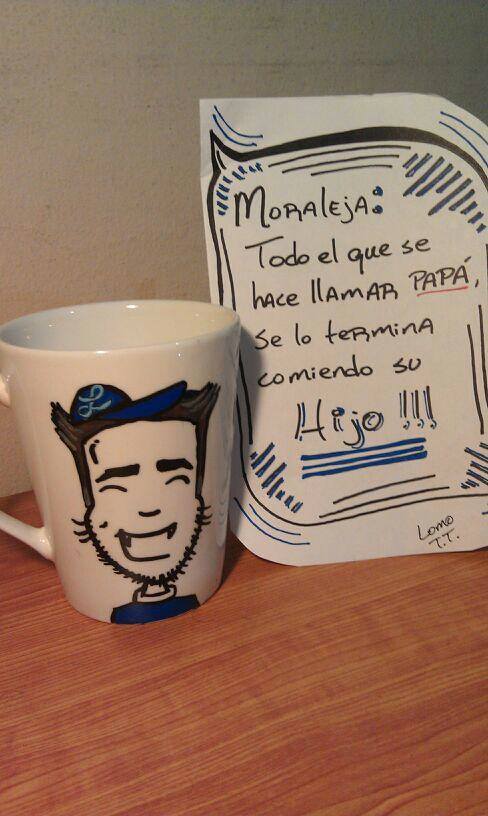 MORALEJA:
Todo el que se
hace llamar PAPÁ,
se lo termina
comiendo su
Hijo !!!
Lomo
T.T.
L